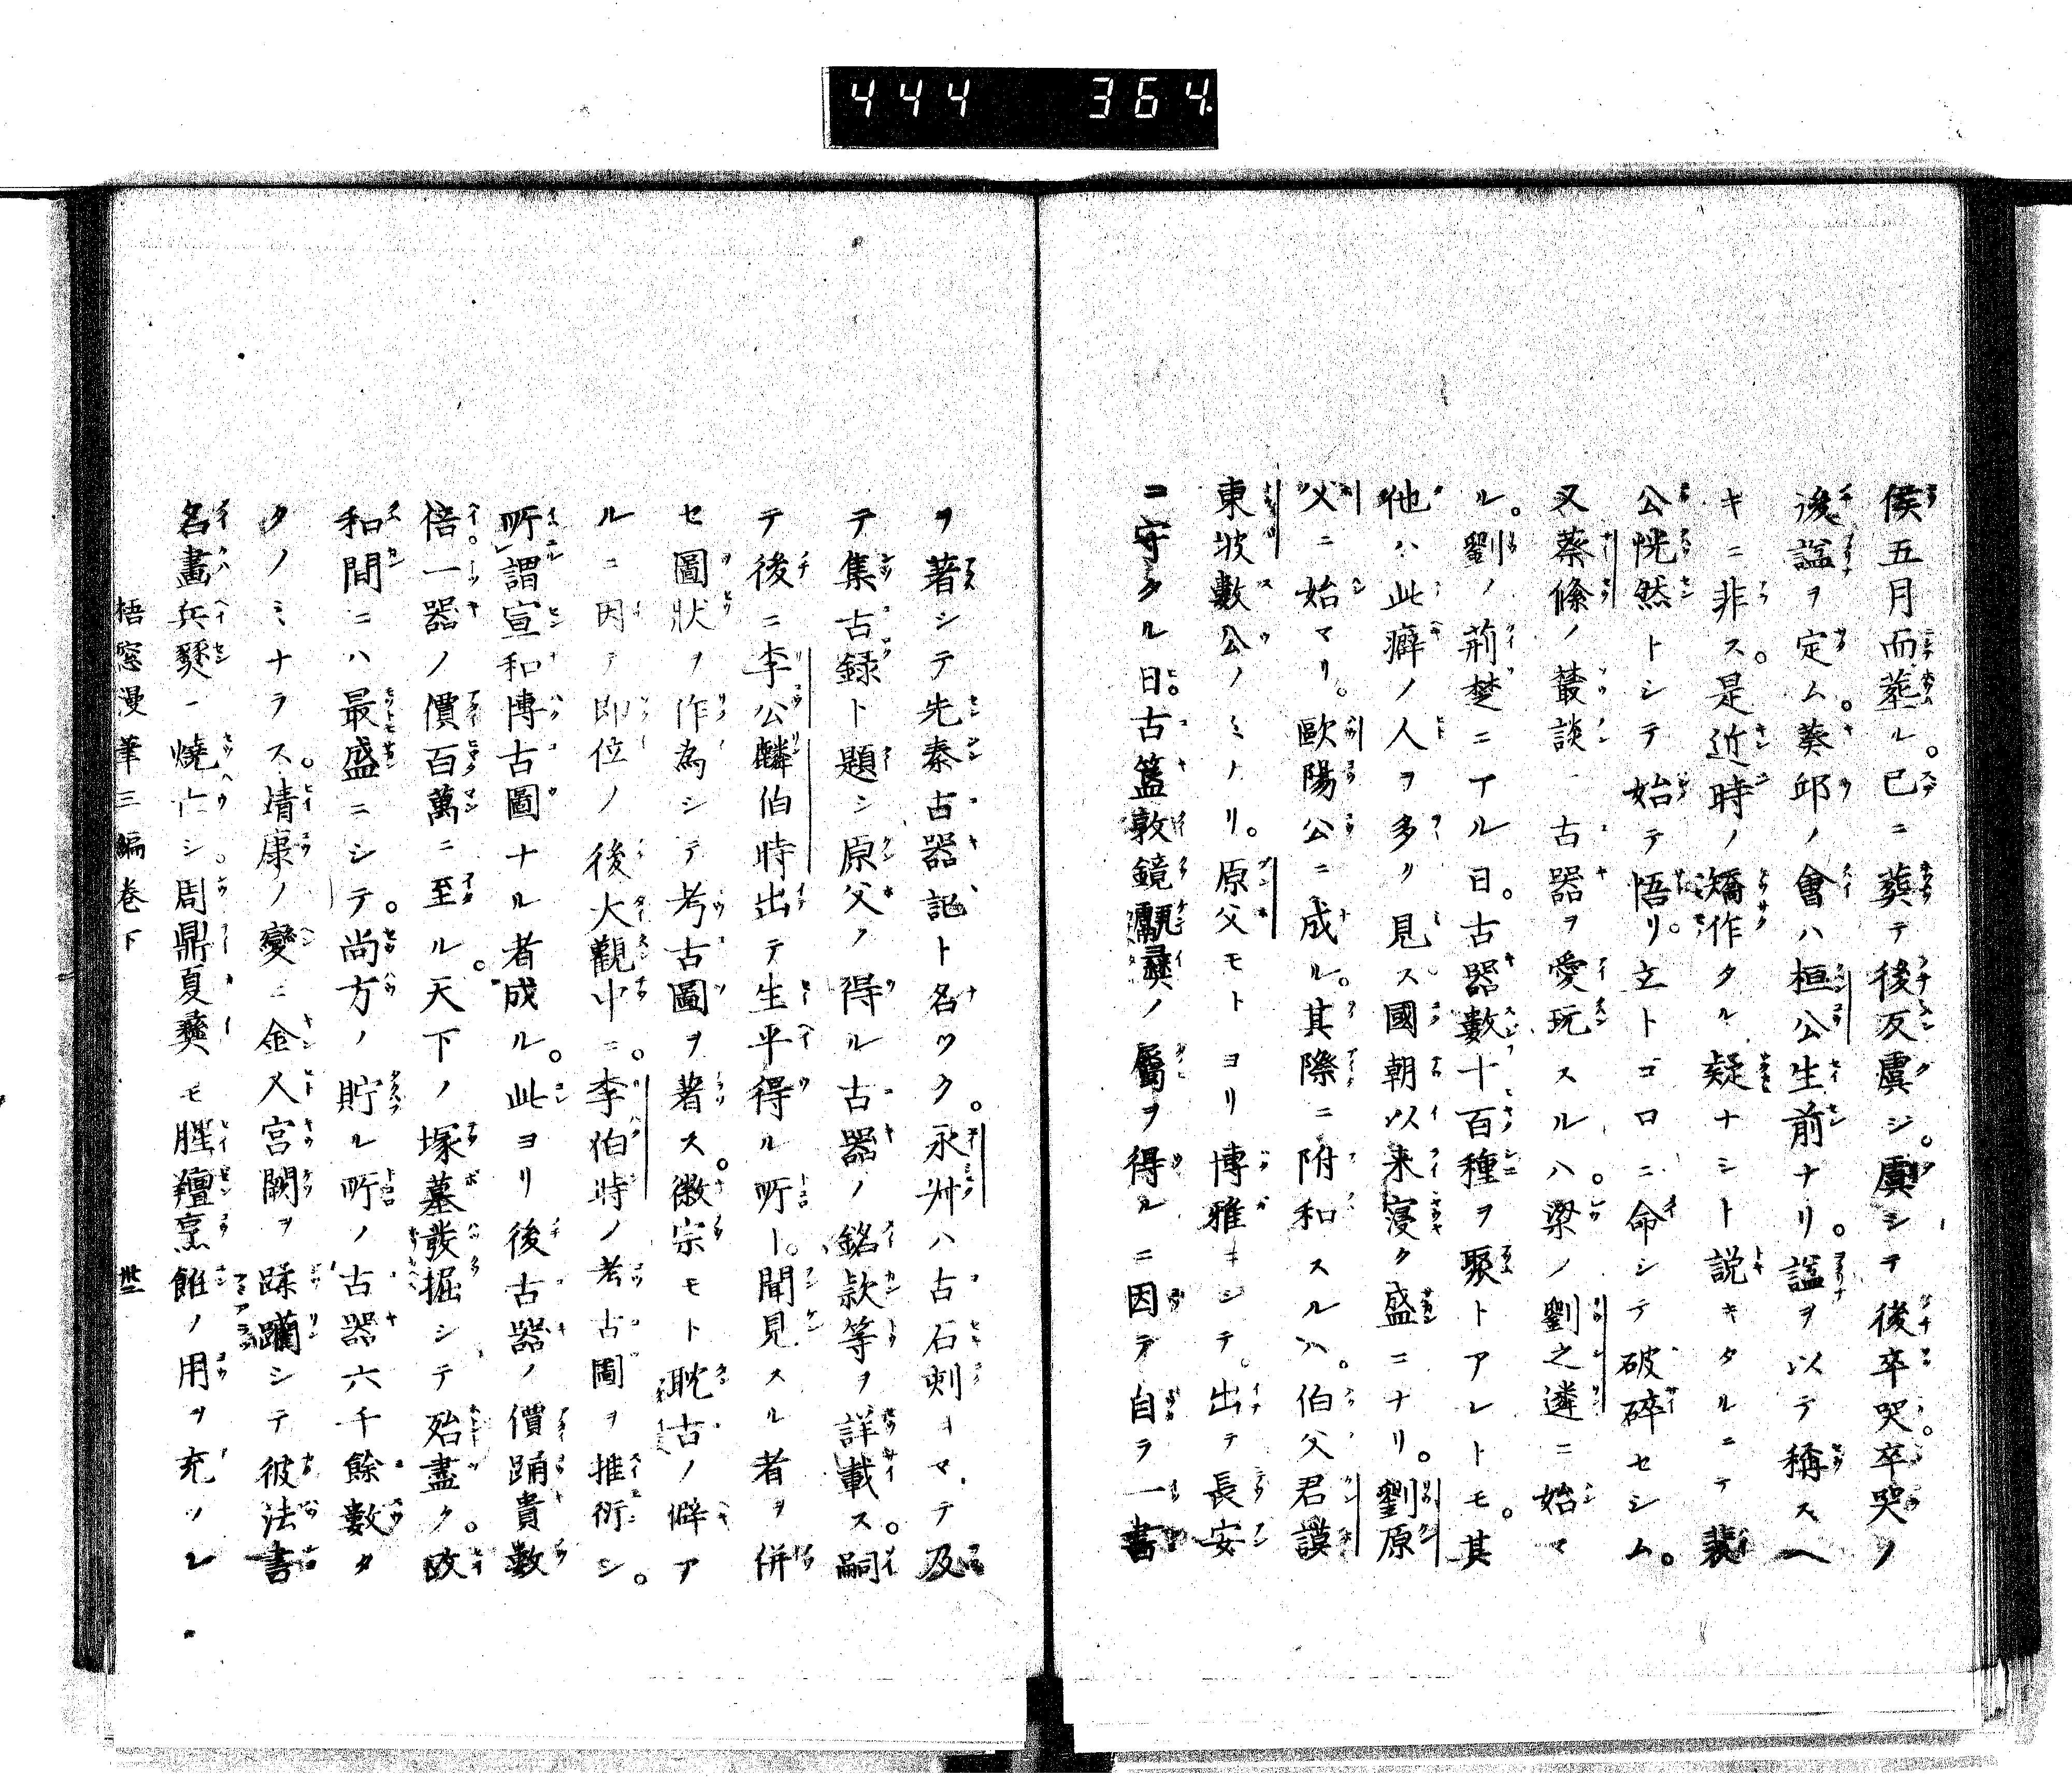 444 364
侯五月而葬ル。已ニ葬テ後反虞シ。虞シテ後卒哭。卒哭ノ
後諡ヲ定ム。葵邱ノ會ハ桓公生前ナリ。諡ヲ以テ稱スヘ
キニ非ス。是近時ノ矯作タル疑ナシト説キタルニテ裴
公恍然トシテ始テ悟リ。立トゴロニ命シテ破碎セシム。
又蔡絛ノ叢談ニ古器ヲ愛玩スルハ。梁ノ劉之遴ニ始マ
ル。劉ノ荊楚ニアル日。古器數十百種ヲ聚トアレトモ。其
他ハ此癖ノ人ヲ多ク見ス國朝以来寖ク盛ニナリ。劉原
父ニ始マリ。歐陽公ニ成ル。其際ニ附和スルハ。伯父君謨
東坡數公ノミノリ。原父モトヨリ博雅ニシテ。出テ長安
ニ守タル日。古簋敦鏡甗彝ノ屬ヲ得ルニ因テ自ラ一書
ヲ著シテ先秦古器記ト名ツク。永叔ハ古石刻ニマテ及
テ集古録ト題シ原父ノ得ル古器ノ銘款等ヲ詳載ス。嗣
テ後ニ李公麟伯時出テ生平得ル所ト。聞見スル者ヲ併
セ圖狀ヲ作為シテ考古圖ヲ著ス。徽宗モト耽古ノ僻ア
ルニ因テ即位ノ後大觀中ニ。李伯時ノ考古圖ヲ推衍シ。
所謂宣和博古圖ナル者成ル。此ヨリ後古器ノ價踊貴數
倍。一器ノ價百萬ニ至ル。天下ノ塚墓發掘シテ殆盡ク。政
和間ニハ最盛ニシテ。尚方ノ貯ル所ノ古器六千餘數タ
クノミナラス。靖康ノ變ニ金人宮闕ヲ蹂躪シテ彼法書
名畫兵燹ニ燒亡シ。周鼎夏彝モ腥羶烹飪ノ用ヲ充ツレ
梧窓漫筆三編卷下 卅三